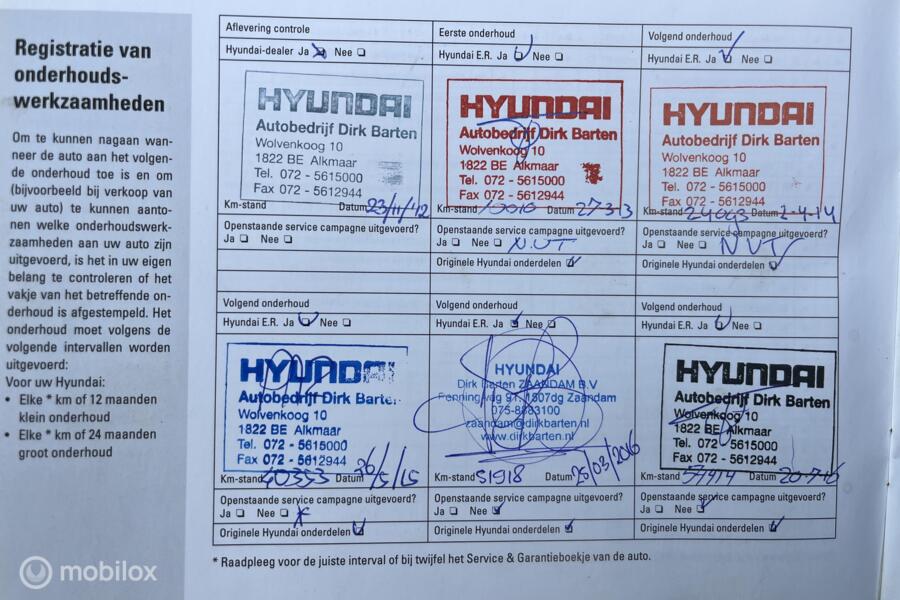 Registratie van
onderhouds-
werkzaamheden
Om te kunnen nagaan wan-
neer de auto aan het volgen-
de onderhoud toe is en om
(bijvoorbeeld bij verkoop van
uw auto) te kunnen aanto-
nen welke onderhoudswerk-
zaamheden aan uw auto zijn
uitgevoerd, is het in uw eigen
belang te controleren of het
vakje van het betreffende on-
derhoud is afgestempeld. Het
onderhoud moet volgens de
volgende intervallen worden
uitgevoerd:
Voor uw Hyundai:
• Elke * km of 12 maanden
klein onderhoud
• Elke * km of 24 maanden
groot onderhoud
Aflevering controle
Hyundai-dealer Ja Nee
HYUNDAI
Autobedrijf Dirk Barten
Wolvenkoog 10
1822 BE Alkmaar
Tel. 072 - 5615000
Fax 072 - 5612944
Km-stand Datum 23/11/12
Openstaande service campagne uitgevoerd?
Ja Nee
Eerste onderhoud
Hyundai E.R. Ja Nee
HYUNDAI
Autobedrijf Dirk Barten
Wolvenkoog 10
1822 BE Alkmaar
Tel. 072 - 5615000
Fax 072 - 5612944
Km-stand Datum 27-3-13
Openstaande service campagne uitgevoerd?
Ja Nee NVT
Originele Hyundai onderdelen
Volgend onderhoud
Hyundai E.R. Ja Nee
HYUNDAI
Autobedrijf Dirk Barten
Wolvenkoog 10
1822 BE Alkmaar
Tel. 072 - 5615000
Fax 072 - 5612944
Km-stand Datum 2-4-14
Openstaande service campagne uitgevoerd?
Ja Nee NVT
Originele Hyundai onderdelen
Volgend onderhoud
Hyundai E.R. Ja Nee
HYUNDAI
Autobedrijf Dirk Barten
Wolvenkoog 10
1822 BE Alkmaar
Tel. 072 - 5615000
Fax 072 - 5612944
Km-stand 40353 Datum 26/5/15
Openstaande service campagne uitgevoerd?
Ja Nee
Originele Hyundai onderdelen
Volgend onderhoud
Hyundai E.R. Ja Nee
HYUNDAI
Dirk Barten ZAANDAM B.V
91, 1507dg Zaandam
zaandam@dirkbarten.nl
www.dirkbarten.nl
Km-stand 51918 Datum 25/03/2016
Openstaande service campagne uitgevoerd?
Ja Nee
Originele Hyundai onderdelen
Volgend onderhoud
Hyundai E.R. Ja Nee
HYUNDAI
Autobedrijf Dirk Barten
Wolvenkoog 10
1822 BE Alkmaar
Tel. 072 - 5615000
Fax 072 - 5612944
Km-stand Datum 20-7-16
Openstaande service campagne uitgevoerd?
Ja Nee
Originele Hyundai onderdelen
* Raadpleeg voor de juiste interval of bij twijfel het Service & Garantieboekje van de auto.
mobilox